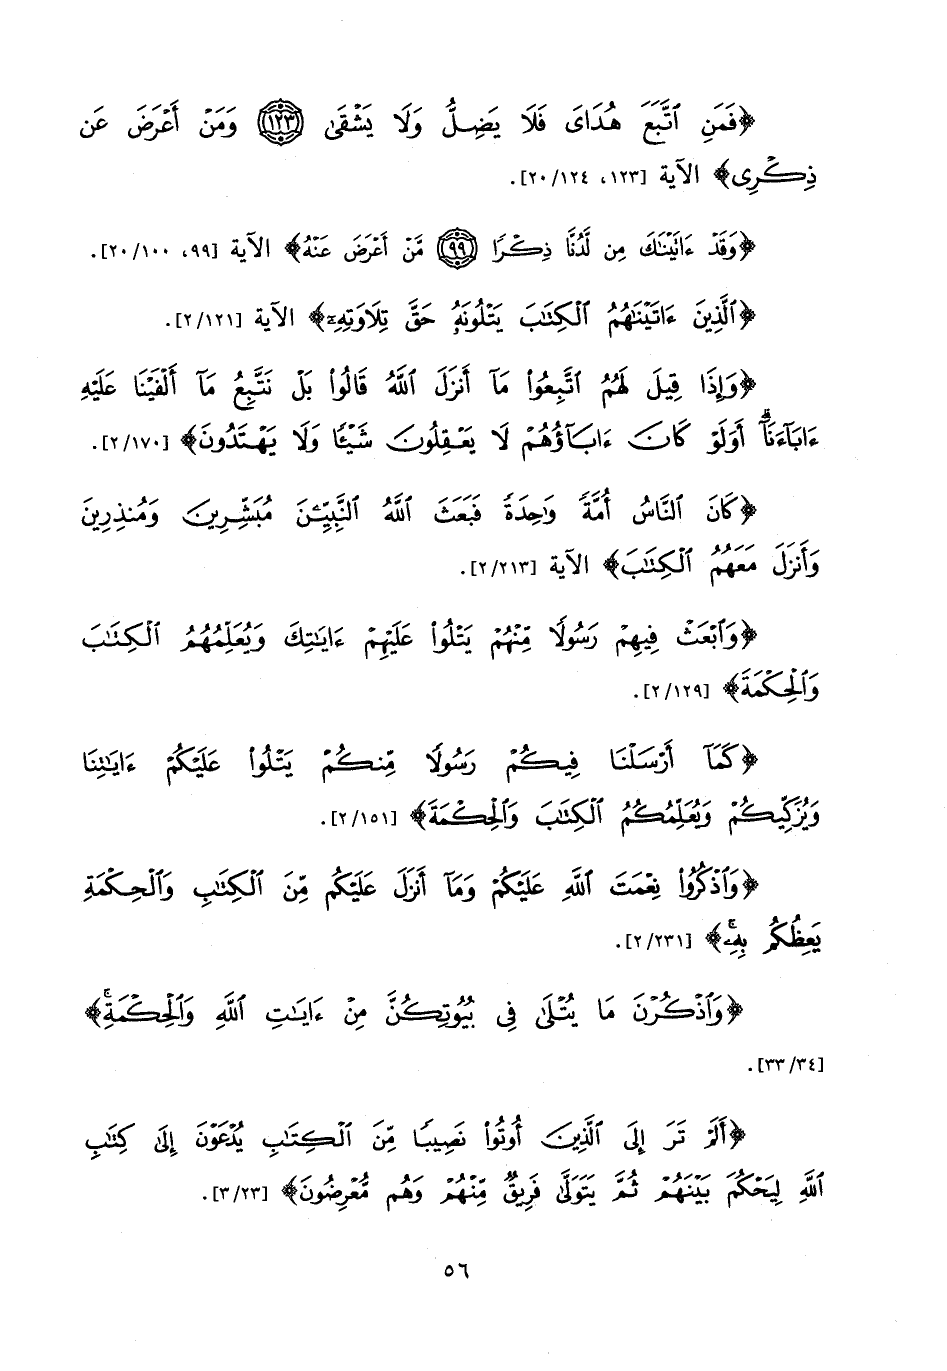 ﴿فَمَنِ ٱتَّبَعَ هُدَاىَ فَلَا يَضِلُّ وَلَا يَشْقَىٰ ١٢٣ وَمَنْ أَعْرَضَ عَن
ذِكْرِى﴾ الآية [١٢٣، ٢٠/١٢٤].
﴿وَقَدْ ءَاتَيْنَٰكَ مِن لَّدُنَّا ذِكْرًا ٩٩ مَّنْ أَعْرَضَ عَنْهُ﴾ الآية [٩٩، ٢٠/١٠٠].
﴿ٱلَّذِينَ ءَاتَيْنَٰهُمُ ٱلْكِتَٰبَ يَتْلُونَهُۥ حَقَّ تِلَاوَتِهِۦٓ﴾ الآية [٢/١٢١].
﴿وَإِذَا قِيلَ لَهُمُ ٱتَّبِعُوا۟ مَآ أَنزَلَ ٱللَّهُ قَالُوا۟ بَلْ نَتَّبِعُ مَآ أَلْفَيْنَا عَلَيْهِ
ءَابَآءَنَآۗ أَوَلَوْ كَانَ ءَابَآؤُهُمْ لَا يَعْقِلُونَ شَيْـًٔا وَلَا يَهْتَدُونَ﴾ [٢/١٧٠].
﴿كَانَ ٱلنَّاسُ أُمَّةً وَٰحِدَةً فَبَعَثَ ٱللَّهُ ٱلنَّبِيِّـۧنَ مُبَشِّرِينَ وَمُنذِرِينَ
وَأَنزَلَ مَعَهُمُ ٱلْكِتَٰبَ﴾ الآية [٢/٢١٣].
﴿وَٱبْعَثْ فِيهِمْ رَسُولًا مِّنْهُمْ يَتْلُوا۟ عَلَيْهِمْ ءَايَٰتِكَ وَيُعَلِّمُهُمُ ٱلْكِتَٰبَ
وَٱلْحِكْمَةَ﴾ [٢/١٢٩].
﴿كَمَآ أَرْسَلْنَا فِيكُمْ رَسُولًا مِّنكُمْ يَتْلُوا۟ عَلَيْكُمْ ءَايَٰتِنَا
وَيُزَكِّيكُمْ وَيُعَلِّمُكُمُ ٱلْكِتَٰبَ وَٱلْحِكْمَةَ﴾ [٢/١٥١].
﴿وَٱذْكُرُوا۟ نِعْمَتَ ٱللَّهِ عَلَيْكُمْ وَمَآ أَنزَلَ عَلَيْكُم مِّنَ ٱلْكِتَٰبِ وَٱلْحِكْمَةِ
يَعِظُكُم بِهِۦۚ﴾ [٢/٢٣١].
﴿وَٱذْكُرْنَ مَا يُتْلَىٰ فِى بُيُوتِكُنَّ مِنْ ءَايَٰتِ ٱللَّهِ وَٱلْحِكْمَةِۚ﴾
[٣٣/٣٤].
﴿أَلَمْ تَرَ إِلَى ٱلَّذِينَ أُوتُوا۟ نَصِيبًا مِّنَ ٱلْكِتَٰبِ يُدْعَوْنَ إِلَىٰ كِتَٰبِ
ٱللَّهِ لِيَحْكُمَ بَيْنَهُمْ ثُمَّ يَتَوَلَّىٰ فَرِيقٌ مِّنْهُمْ وَهُم مُّعْرِضُونَ﴾ [٣/٢٣].
٥٦